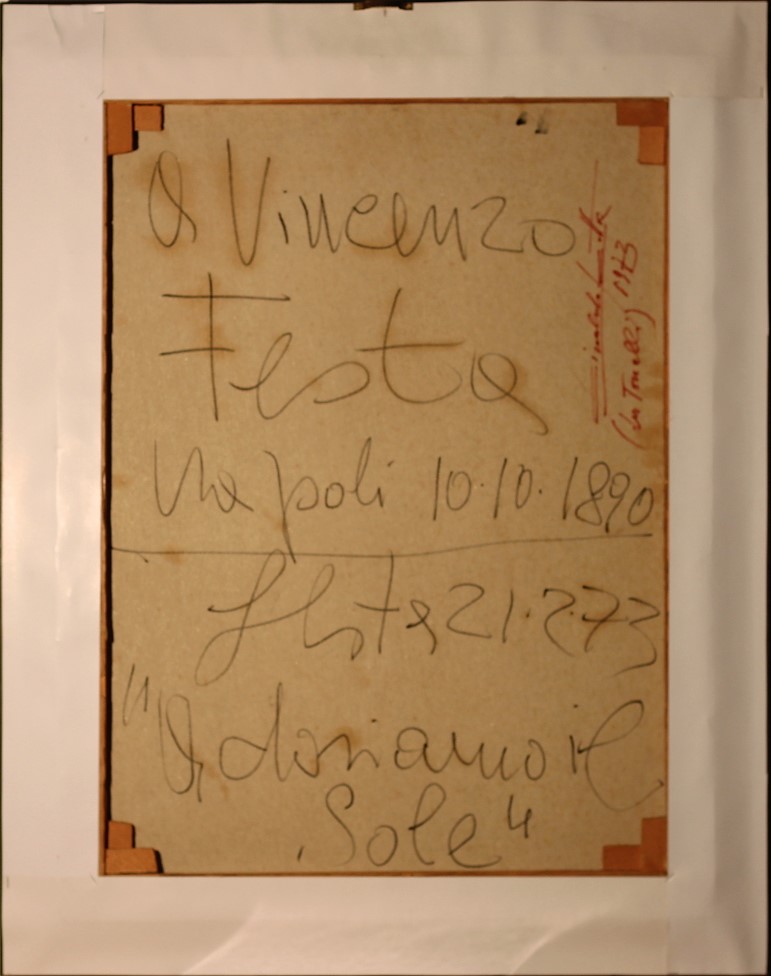 A Vincenzo
Festa
Napoli 10.10.1890
Festa 21.2.73
"Adoriamo il
Sole"
1973